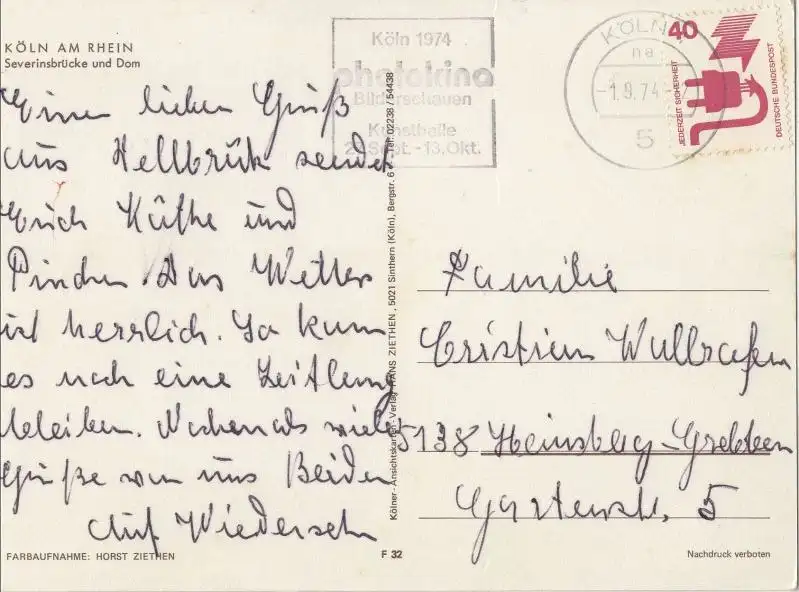 KÖLN AM RHEIN
Severinsbrücke und Dom
Einen lieben Gruß
aus Hellbrük sendet
Erich Küthe und
Das Wetter
ist herrlich. So kann
es noch eine Zeitlang
bleiben. Nochemals viele
Grüße von uns Beiden
Auf Wiedersehn
FARBAUFNAHME: HORST ZIETHEN
F 32
Kölner-Ansichtskarten-Verlag HANS ZIETHEN, 5021 Sinthern (Köln), Bergstr. 6 Tel 02238 / 54438
Köln 1974
photokina
Bilderschauen
Kunsthalle
Sept. -13.Okt.
KÖLN
na
-1.9.74-
5
40
JEDERZEIT SICHERHEIT
DEUTSCHE BUNDESPOST
Familie
Cristian Wullrafen
5138 Heinsberg-Grebben
Gartenstr. 5
Nachdruck verboten